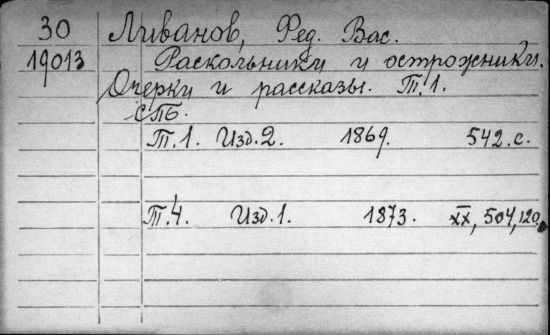 30 Ливанов, Фед. Вас.
19013 Раскольники и острожники.
Очерки и рассказы. Т.1.
СПБ.
Т.1. Изд.2. 1869. 542.с.
Т.4. Изд.1. 1873. XX, 504, 120,